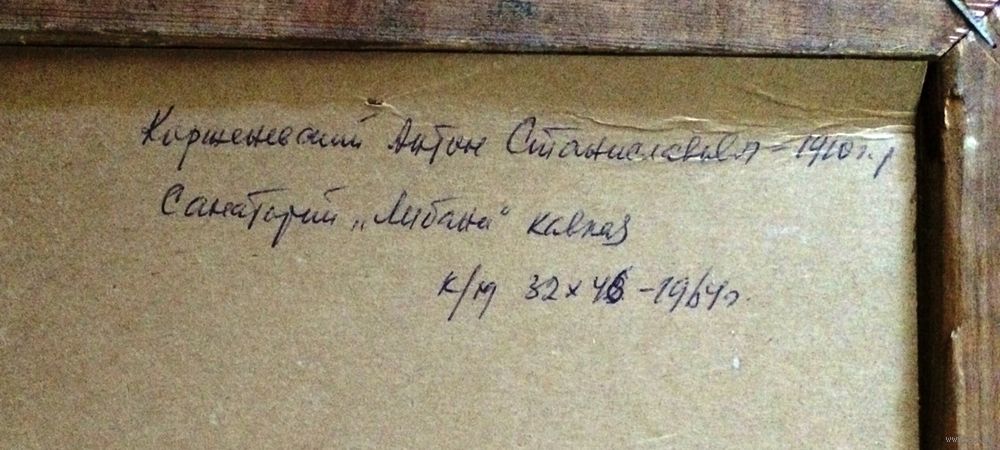 Коржевский Антон Станиславович - 1910 г.р
Санаторий „Либани" Кавказ
к/м 32х46 - 1964г.